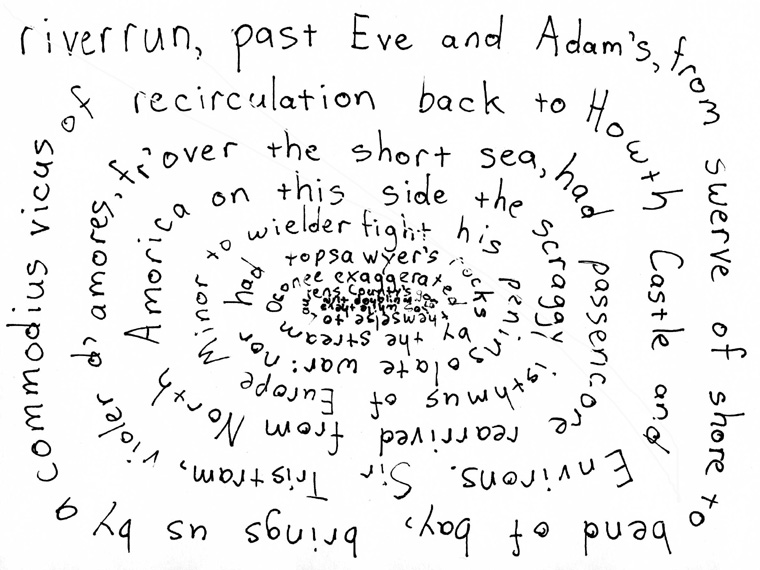 riverrun, past Eve and Adam's, from swerve of shore to bend of bay, brings us by a commodius vicus
of recirculation back to Howth Castle and Environs. Sir Tristram, violer d'amores,
fr'over the short sea, had passencore rearrived from North Amorica
on this side the scraggy isthmus of Europe Minor
to wielderfight his peninsolate war: nor had
topsawyer's rocks by the stream
Oconee exaggerated themselse to
County's
while they